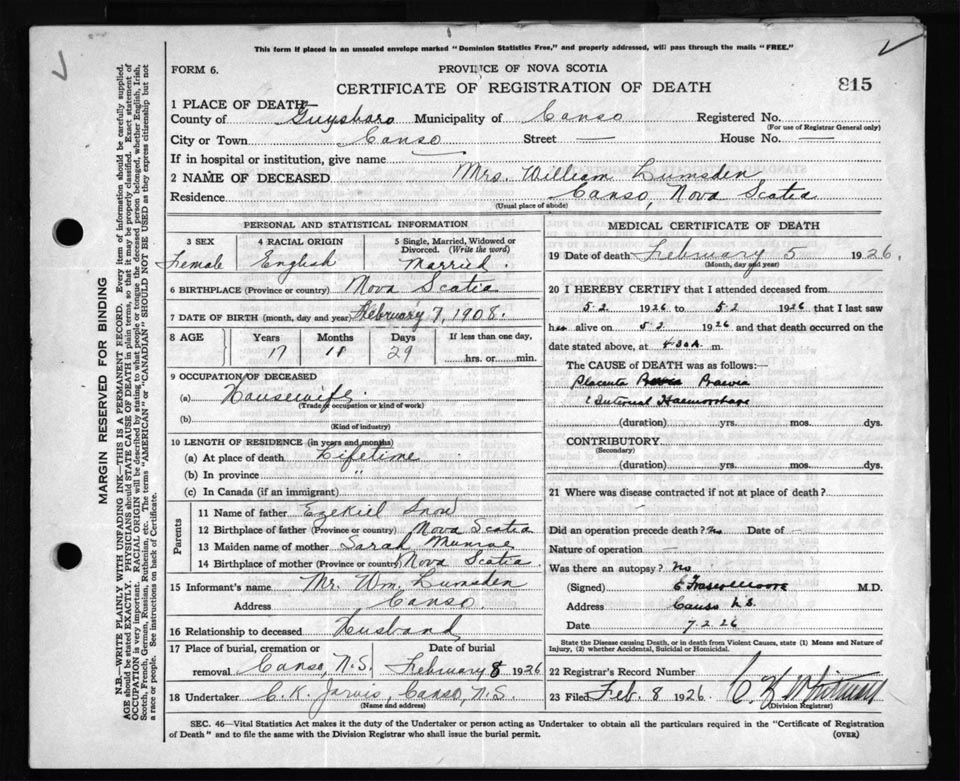 This form if placed in an unsealed envelope marked "Dominion Statistics Free," and properly addressed, will pass through the mails "FREE."
FORM 6.
PROVINCE OF NOVA SCOTIA
CERTIFICATE OF REGISTRATION OF DEATH
815
1 PLACE OF DEATH—
County of Guysboro Municipality of Canso Registered No.
(For use of Registrar General only)
City or Town Canso Street — House No. —
If in hospital or institution, give name —
2 NAME OF DECEASED Mrs. William Lumsden
Residence Canso, Nova Scotia
(Usual place of abode)
PERSONAL AND STATISTICAL INFORMATION
3 SEX 4 RACIAL ORIGIN 5 Single, Married, Widowed or Divorced. (Write the word)
Female English Married.
6 BIRTHPLACE (Province or country) Nova Scotia
7 DATE OF BIRTH (month, day and year) February 7, 1908.
8 AGE Years Months Days If less than one day,
17 29 hrs. or min.
9 OCCUPATION OF DECEASED
(a) Housewife.
(Trade or occupation or kind of work)
(b)
(Kind of industry)
10 LENGTH OF RESIDENCE (in years and months)
(a) At place of death Lifetime
(b) In province "
(c) In Canada (if an immigrant)
Parents
11 Name of father Ezekiel Snow
12 Birthplace of father (Province or country) Nova Scotia
13 Maiden name of mother Sarah Munroe
14 Birthplace of mother (Province or country) Nova Scotia
15 Informant's name Mr. Wm. Lumsden
Address Canso.
16 Relationship to deceased Husband
17 Place of burial, cremation or Date of burial
removal Canso, N.S. February 8 1926
18 Undertaker C. K. Jarvis, Canso, N.S.
(Name and address)
MEDICAL CERTIFICATE OF DEATH
19 Date of death February 5 1926.
(Month, day and year)
20 I HEREBY CERTIFY that I attended deceased from
5.2. 1926 to 5.2 1926 that I last saw
her alive on 5.2 1926 and that death occurred on the
date stated above, at 4.30A. m.
The CAUSE OF DEATH was as follows:—
Placenta Praevia
(Internal Haemorrhage
(duration) yrs. mos. dys.
CONTRIBUTORY
(Secondary)
(duration) yrs. mos. dys.
21 Where was disease contracted if not at place of death?
Did an operation precede death? No Date of —
Nature of operation —
Was there an autopsy? No
(Signed) M.D.
Address Canso N.S.
Date 7.2.26
State the Disease causing Death, or in death from Violent Causes, state (1) Means and Nature of
Injury, (2) whether Accidental, Suicidal or Homicidal.
22 Registrar's Record Number
23 Filed Feb. 8 1926.
(Division Registrar)
SEC. 46—Vital Statistics Act makes it the duty of the Undertaker or person acting as Undertaker to obtain all the particulars required in the "Certificate of Registration
of Death" and to file the same with the Division Registrar who shall issue the burial permit.
(OVER)
MARGIN RESERVED FOR BINDING
N.B.—WRITE PLAINLY WITH UNFADING INK—THIS IS A PERMANENT RECORD. Every item of information should be carefully supplied.
AGE should be stated EXACTLY. PHYSICIANS should STATE CAUSE OF DEATH in plain terms, so that it may be properly classified. Exact statement of
OCCUPATION is very important. RACIAL ORIGIN will be described by stating to what people or tongue the deceased person belonged, whether English, Irish,
Scotch, French, German, Russian, Ruthenian, etc. The terms "AMERICAN" or "CANADIAN" SHOULD NOT BE USED as they express citizenship but not
a race or people. See instructions on back of Certificate.